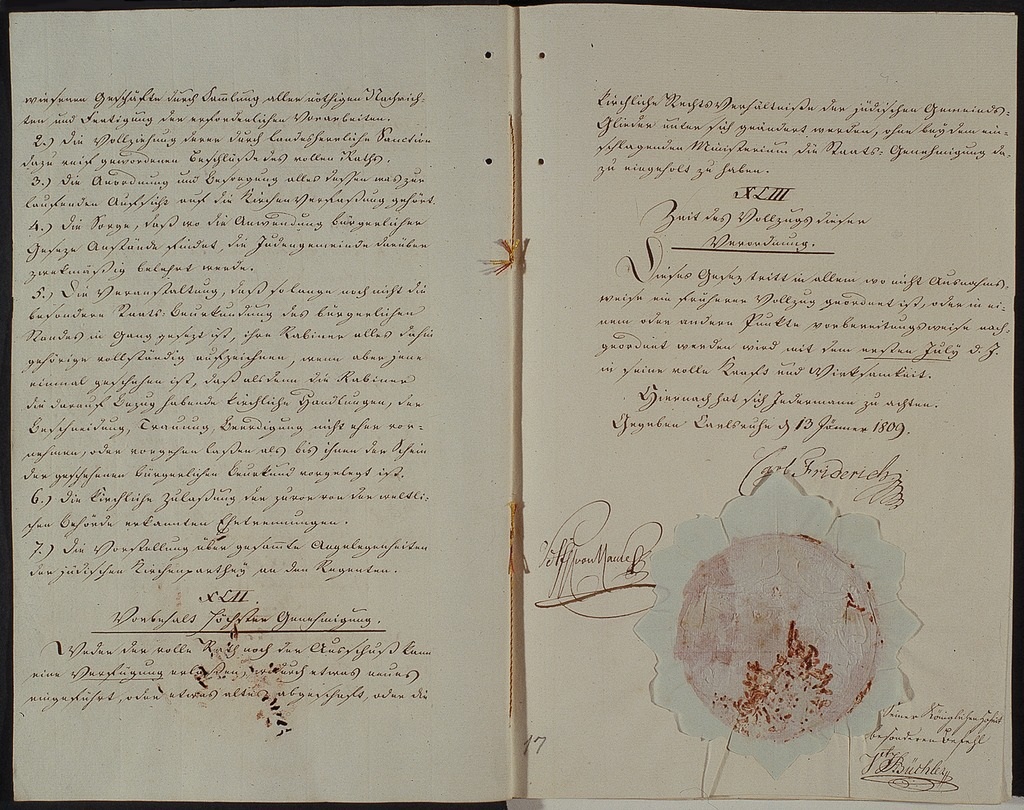 wiesenen Geschäfte durch Sammlung aller nöthigen Nachrich-
ten und Fertigung der erforderlichen Vorarbeiten.
2.) Die Vollziehung derer durch landesherrliche Sanction
dazu reif gewordenen Beschlüsse des vollen Raths.
3.) Die Anordnung und Besorgung alles dessen was zur
laufenden Aufsicht auf die KirchenVerfassung gehört.
4.) Die Sorge, daß wo die Anwendung bürgerlicher
Geseze Anstände findet, die Judengemeinde darüber
zwekmäßig belehrt werde.
5.) Die Veranstaltung, daß so lange noch nicht die
besondere Staats-Beurkundung des bürgerlichen
Standes in Gang gesezt ist, ihre Rabiner alles dahin
gehörige vollständig aufzeichnen, wenn aber jene
einmal geschehen ist, daß alsdenn die Rabiner
die darauf Bezug habende kirchliche Handlungen, der
Beschneidung, Trauung, Beerdigung nicht eher vor-
nehmen, oder vorgehen laßen als bis ihnen der Schein
der geschehenen bürgerlichen Beurkund vorgelegt ist.
6.) Die kirchliche Zulaßung der zuvor von der weltli-
chen Behörde erkannten Ehetrennungen.
7.) Die Vorstellung über gesamte Angelegenheiten
der jüdischen Kirchenparthey an den Regenten.
XLII.
Vorbehalt höchster Genehmigung.
Weder der volle Rath noch der Ausschuß kann
eine Verfügung erlaßen, wodurch etwas neues
eingeführt, oder etwas altes abgeschaft, oder die
kirchliche RechtsVerhältniße der jüdischen Gemeinds-
Glieder unter sich geändert werden, ohne bey dem ein-
schlagenden Ministerium die Staats-Genehmigung da-
zu eingeholt zu haben.
XLIII
Zeit des Vollzugs dieser
Verordnung.
Dieses Gesez tritt in allem wo nicht Ausnahms-
weise ein früherer Vollzug geordnet ist, oder in ei-
nem oder andern Punkte vorbereitungsweise nach-
geordnet werden wird mit dem ersten July d. J.
in seine volle Kraft und Wirksamkeit.
Hiernach hat sich Jedermann zu achten.
Gegeben Carlsruhe d 13 Jänner 1809.
Carl Friderich
von
Seiner Königlichen Hoheit
besonderen Befehl
Büchler
17